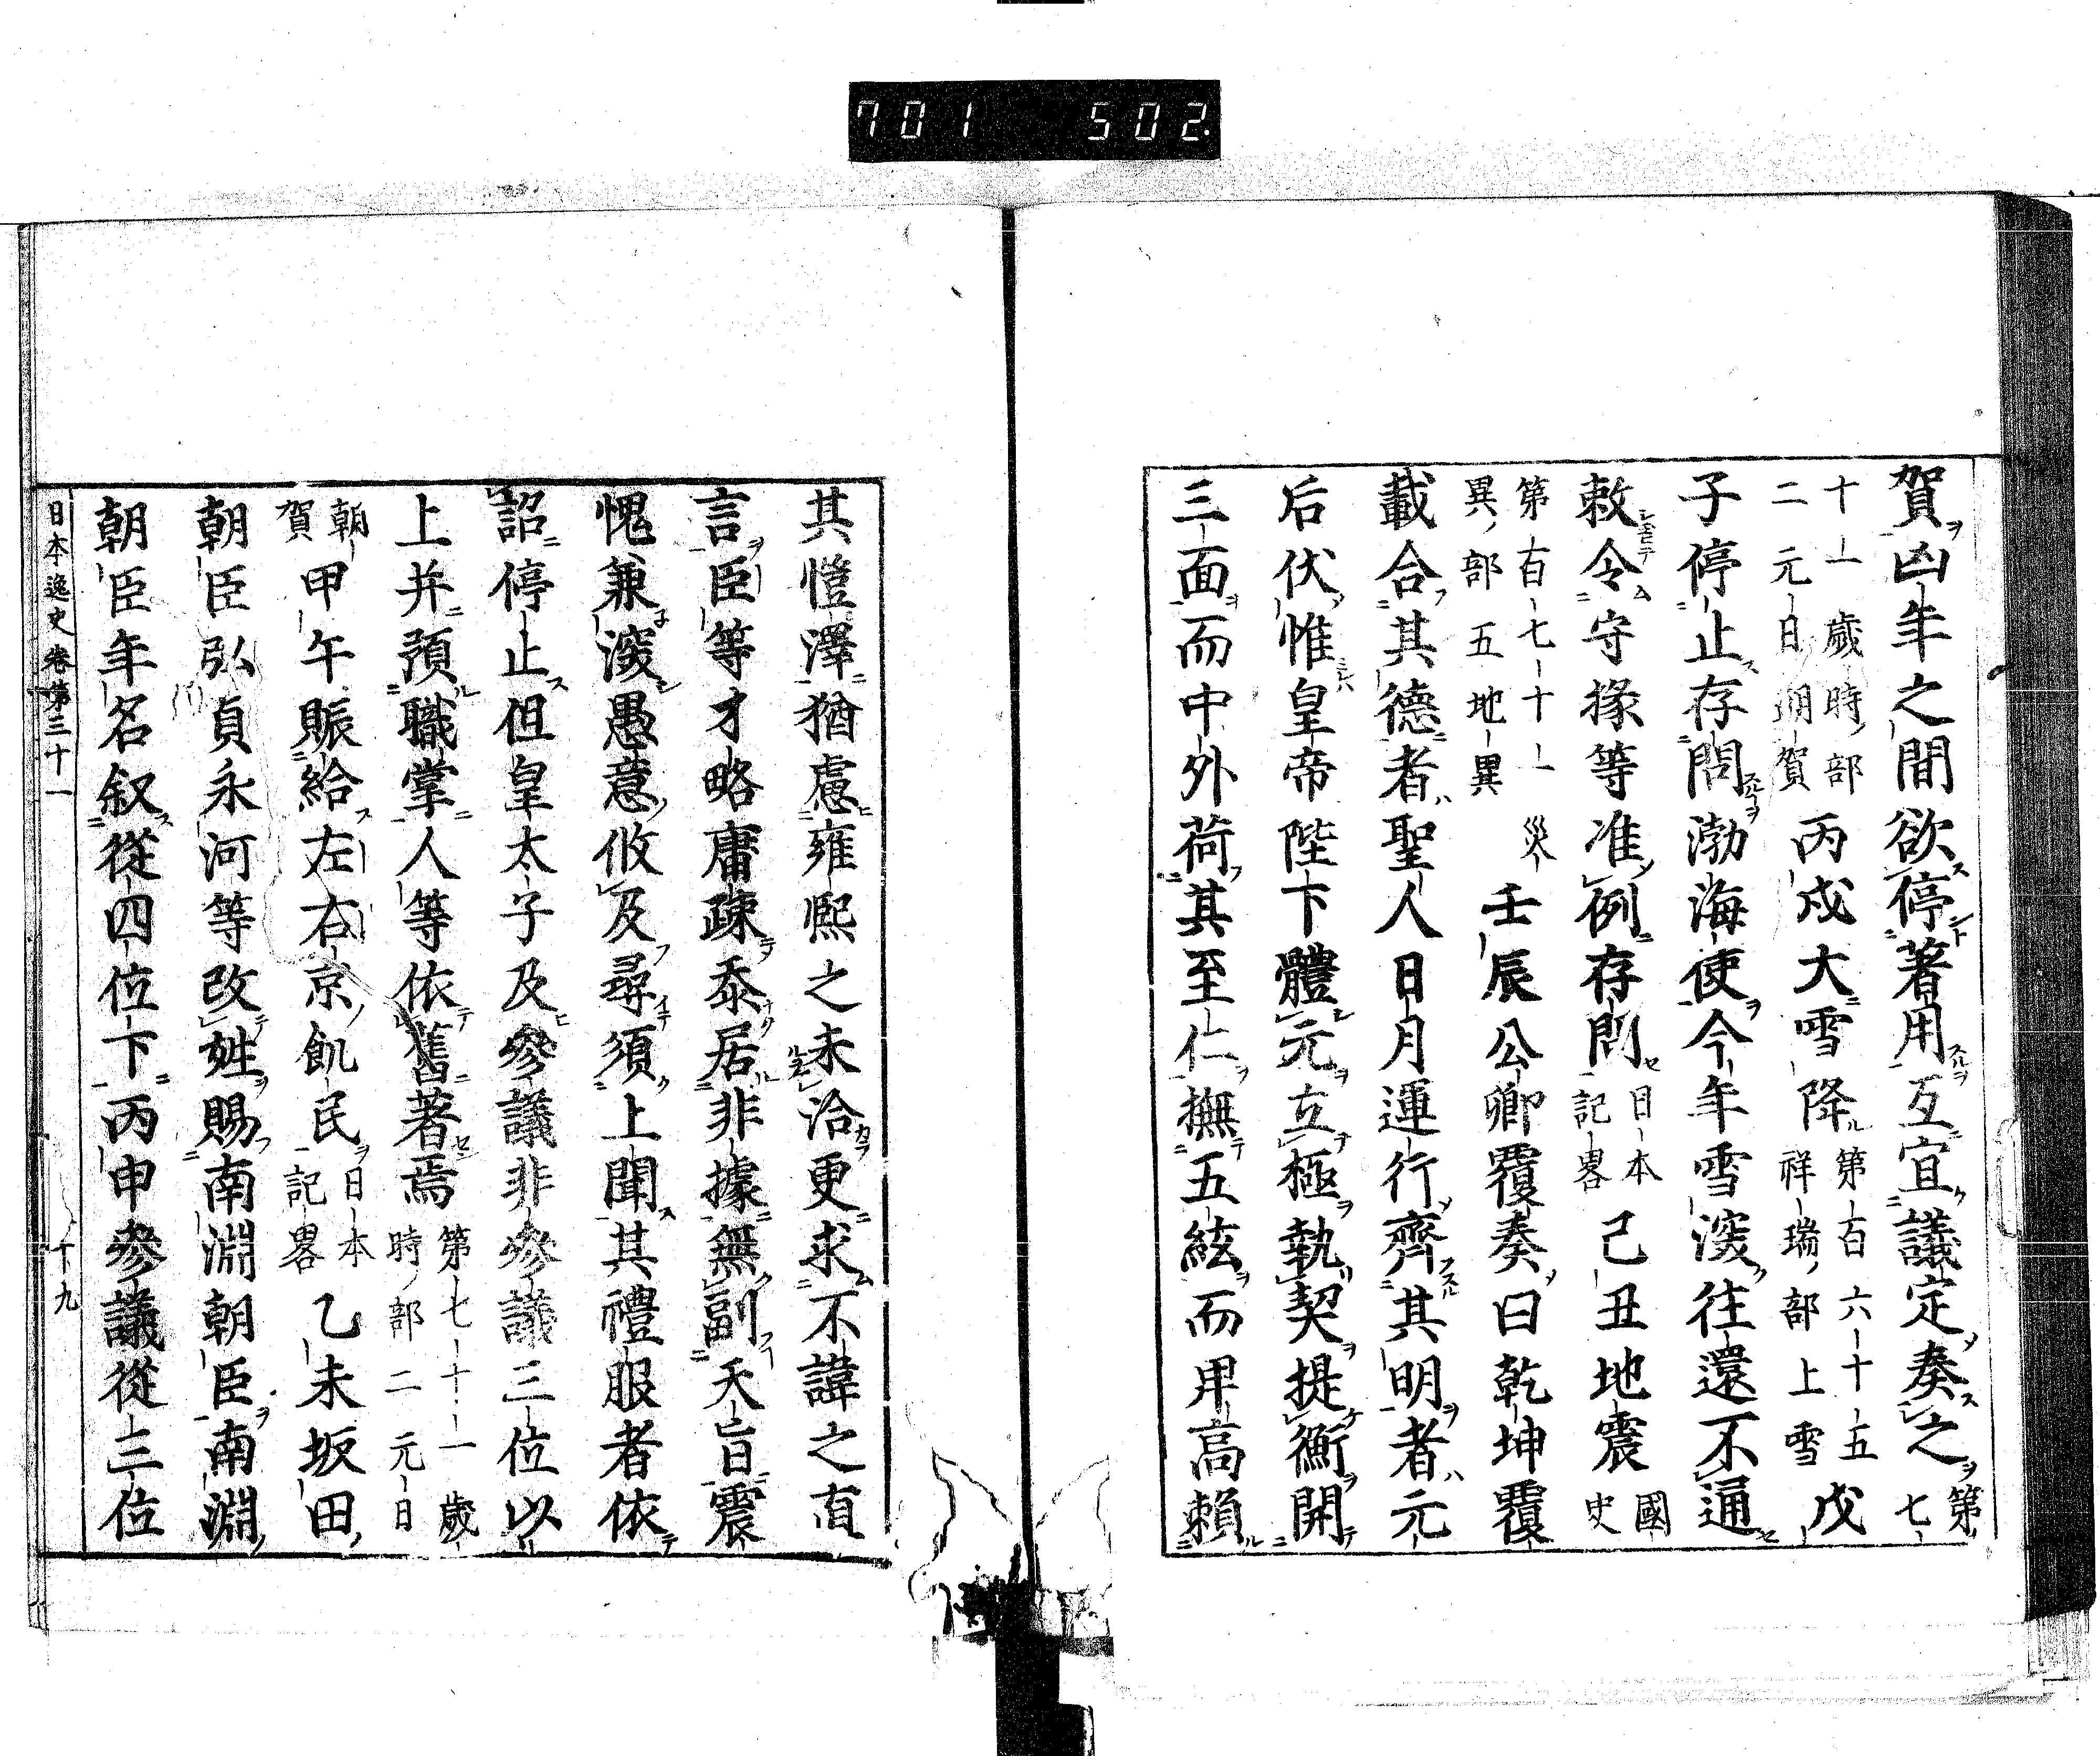 701 502
賀凶年之間欲停著用互宜議定奏之第七
十一歲時部二元日朝賀丙戌大雪降第百六十五祥瑞部上雪戊
子停止存問渤海使今年雪深往還不通
敕令守掾等准例存問日本記畧己丑地震國史
第百七十一災異部五地異壬辰公卿覆奏曰乾坤覆
載合其德者聖人日月運行齊其明者元
后伏惟皇帝陛下體元立極執契提衡開
三面而中外荷其至仁撫五絃而甲高賴
其愷澤猶慮雍熙之未洽更求不諱之直
言臣等才略庸疎忝居非據無副天旨震
愧兼深愚意攸及尋須上聞其禮服者依
詔停止但皇太子及參議非參議三位以
上并預職掌人等依舊著焉第七十一歲時部二元日
朝賀甲午賑給左右京飢民日本記畧乙未坂田
朝臣弘貞永河等改姓賜南淵朝臣南淵
朝臣年名叙從四位下丙申參議從三位
日本逸史卷第三十一 十九